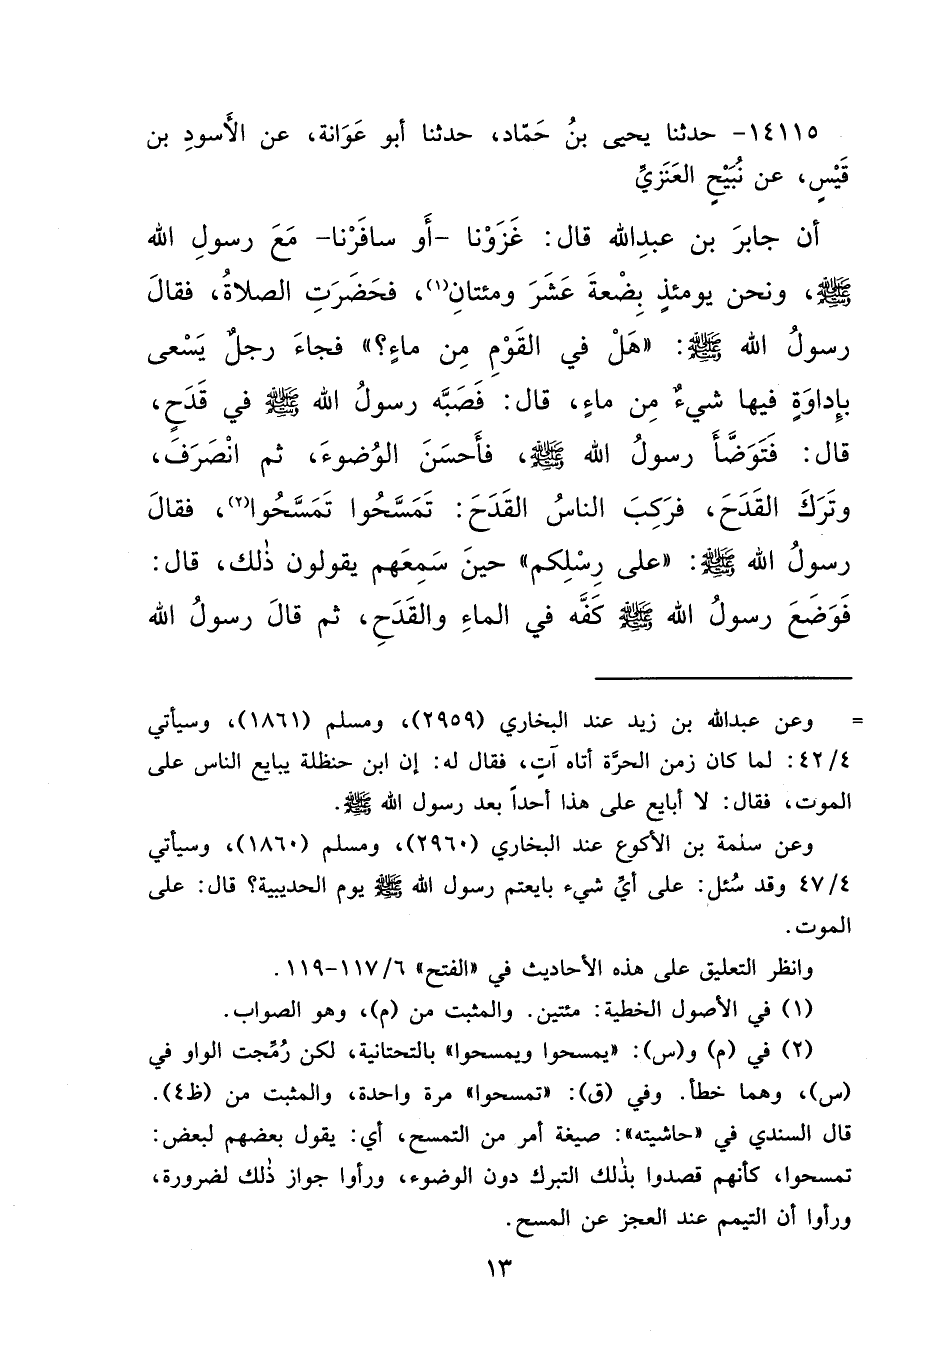 ١٤١١٥- حدثنا يحيى بنُ حَمّاد، حدثنا أبو عَوَانة، عن الأَسودِ بن
قَيْسٍ، عن نُبَيْحٍ العَنَزيِّ
أن جابرَ بن عبدِالله قال: غَزَوْنا -أَو سافَرْنا- مَعَ رسولِ الله
ﷺ، ونحن يومئذٍ بِضْعةَ عَشَرَ ومئتانِ(١)، فحَضَرَتِ الصلاةُ، فقالَ
رسولُ الله ﷺ: «هَلْ في القَوْمِ مِن ماءٍ؟» فجاءَ رجلٌ يَسْعى
بإِداوَةٍ فيها شيءٌ مِن ماءٍ، قال: فَصَبَّه رسولُ الله ﷺ في قَدَحٍ،
قال: فَتَوَضَّأَ رسولُ الله ﷺ، فأَحسَنَ الوُضوءَ، ثم انْصَرَفَ،
وتَرَكَ القَدَحَ، فرَكِبَ الناسُ القَدَحَ: تَمَسَّحُوا تَمَسَّحُوا(٢)، فقالَ
رسولُ الله ﷺ: «على رِسْلِكم» حينَ سَمِعَهم يقولون ذٰلك، قال:
فَوَضَعَ رسولُ الله ﷺ كَفَّه في الماءِ والقَدَحِ، ثم قالَ رسولُ الله
= وعن عبدالله بن زيد عند البخاري (٢٩٥٩)، ومسلم (١٨٦١)، وسيأتي
٤٢/٤: لما كان زمن الحرَّة أتاه آتٍ، فقال له: إن ابن حنظلة يبايع الناس على
الموت، فقال: لا أبايع على هذا أحداً بعد رسول الله ﷺ.
وعن سلمة بن الأكوع عند البخاري (٢٩٦٠)، ومسلم (١٨٦٠)، وسيأتي
٤٧/٤ وقد سُئل: على أيِّ شيء بايعتم رسول الله ﷺ يوم الحديبية؟ قال: على
الموت.
وانظر التعليق على هذه الأحاديث في «الفتح» ١١٧/٦-١١٩.
(١) في الأصول الخطية: مئتين. والمثبت من (م)، وهو الصواب.
(٢) في (م) و(س): «يمسحوا ويمسحوا» بالتحتانية، لكن رُمِّجت الواو في
(س)، وهما خطأ. وفي (ق): «تمسحوا» مرة واحدة، والمثبت من (ظ٤).
قال السندي في «حاشيته»: صيغة أمر من التمسح، أي: يقول بعضهم لبعض:
تمسحوا، كأنهم قصدوا بذٰلك التبرك دون الوضوء، ورأوا جواز ذٰلك لضرورة،
ورأوا أن التيمم عند العجز عن المسح.
١٣